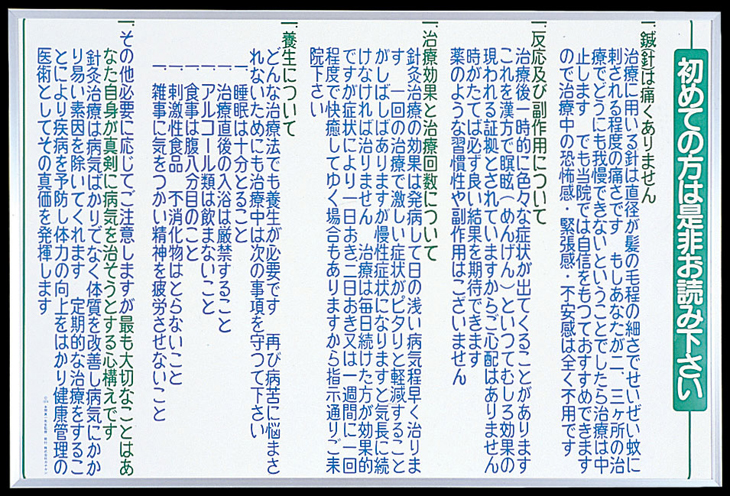 初めての方は是非お読み下さい
一、鍼針は痛くありません
治療に用いる針は直径が髪の毛程の細さでせいぜい蚊に
刺される程度の痛さです　もしあなたが二、三ヶ所の治
療でどうにも我慢できないということでしたら治療は中
止します　でも当院では自信をもっておすすめできます
ので治療中の恐怖感・緊張感・不安感は全く不用です
一、反応及び副作用について
治療後一時的に色々な症状が出てくることがあります
これを漢方で瞑眩（めんげん）といってむしろ効果の
現われる証拠とされていますからご心配はありません
時がたてば必ず良い結果を期待できます
薬のような習慣性や副作用はございません
一、治療効果と治療回数について
針灸治療の効果は発病して日の浅い病気程早く治りま
す　一回の治療で激しい症状がピタリと軽減すること
がしばしばありますが慢性症状になりますと気長に続
けなければ治りません　治療は毎日続けた方が効果的
ですが症状により一日おき二日おき又は一週間に一回
程度で快癒してゆく場合もありますから指示通りご来
院下さい
一、養生について
どんな治療法でも養生が必要です　再び病苦に悩まさ
れないためにも治療中は次の事項を守って下さい
一、睡眠は十分とること
一、治療直後の入浴は厳禁すること
一、アルコール類は飲まないこと
一、食事は腹八分目のこと
一、刺激性食品　不消化物はとらないこと
一、雑事に気をつかい精神を疲労させないこと
一、その他必要に応じてご注意しますが最も大切なことはあ
なた自身が真剣に病気を治そうとする心構えです
針灸治療は病気ばかりでなく体質を改善し病気にかか
り易い素因を除いてくれます　定期的な治療をするこ
とにより疾病を予防し体力の向上をはかり健康管理の
医術としてその真価を発揮します